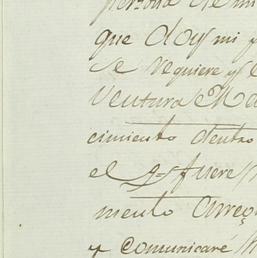 persona de mi
que doy mi p
se requiere y
Ventura Ma
cimiento dentro
el q.e fuere
miento arreg
y comunicaré